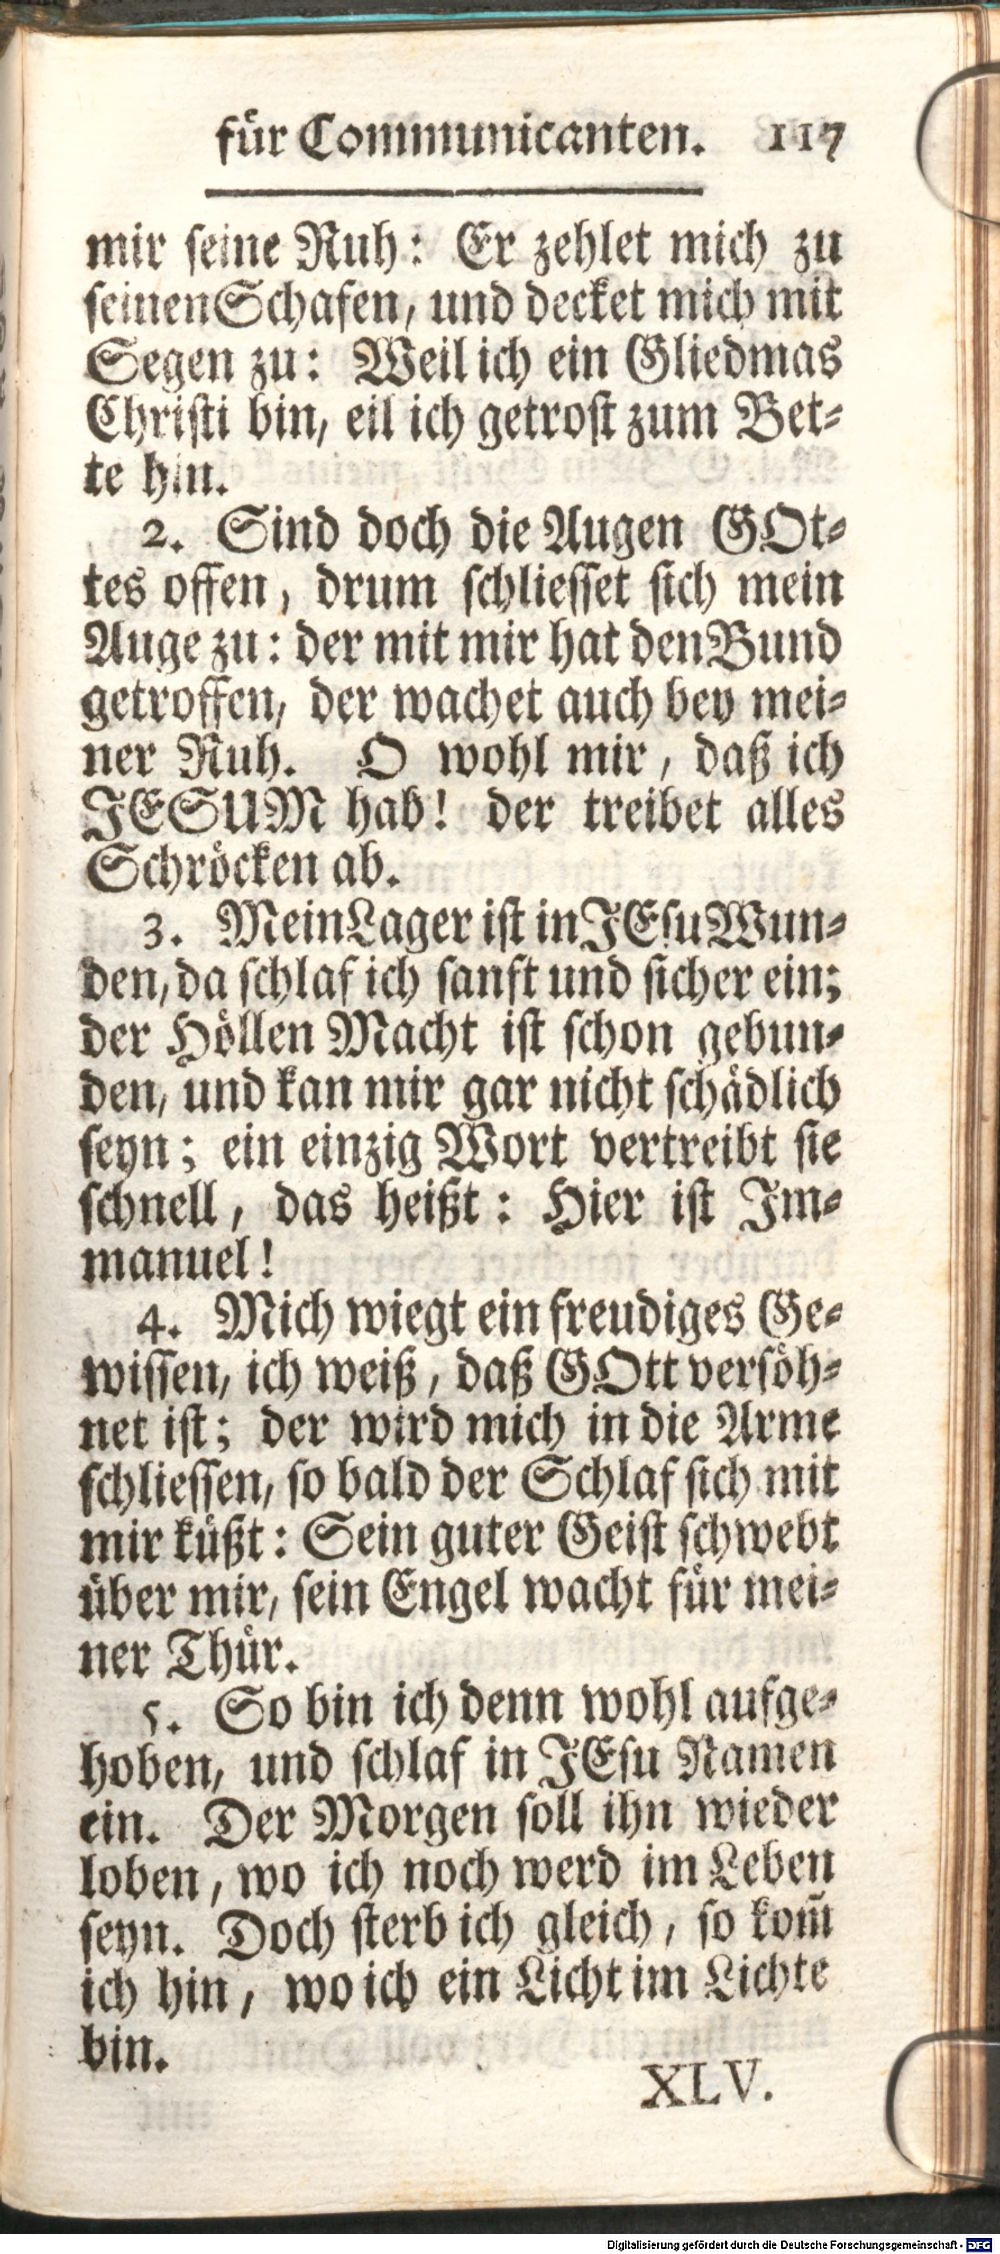 für Communicanten. 117
mir seine Ruh: Er zehlet mich zu
seinen Schafen, und decket mich mit
Segen zu: Weil ich ein Gliedmas
Christi bin, eil ich getrost zum Bet-
te hin.
2. Sind doch die Augen GOt-
tes offen, drum schliesset sich mein
Auge zu: der mit mir hat den Bund
getroffen, der wachet auch bey mei-
ner Ruh. O wohl mir, daß ich
JESUM hab! der treibet alles
Schröcken ab.
3. Mein Lager ist in JEsu Wun-
den, da schlaf ich sanft und sicher ein;
der Höllen Macht ist schon gebun-
den, und kan mir gar nicht schädlich
seyn; ein einzig Wort vertreibt sie
schnell, das heißt: Hier ist Im-
manuel!
4. Mich wiegt ein freudiges Ge-
wissen, ich weiß, daß GOtt versöh-
net ist; der wird mich in die Arme
schliessen, so bald der Schlaf sich mit
mir küßt: Sein guter Geist schwebt
über mir, sein Engel wacht für mei-
ner Thür.
5. So bin ich denn wohl aufge-
hoben, und schlaf in JEsu Namen
ein. Der Morgen soll ihn wieder
loben, wo ich noch werd im Leben
seyn. Doch sterb ich gleich, so kom̃
ich hin, wo ich ein Licht im Lichte
bin.
XLV.
Digitalisierung gefördert durch die Deutsche Forschungsgemeinschaft - DFG